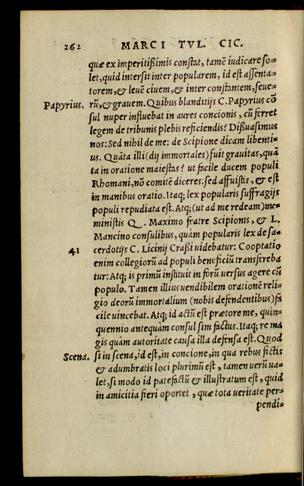 262 MARCI TVL. CIC.
quæ ex imperitißimis constat, tamē iudicare so-
let, quid intersit inter popularem, id est assenta-
torem, & leuē ciuem, & inter constantem, seue-
Papyrius. rū, & grauem. Quibus blanditijs C. Papyrius cō
sul nuper influebat in aures concionis, cū ferret
legem de tribunis plebis reficiendis? Dißuasimus
nos: Sed nihil de me: de Scipione dicam libenti-
us. Quāta illi (dij immortales) fuit grauitas, quā
ta in oratione maiestas? ut facile ducem populi
Rhomani, nō comitē diceres. sed affuistis, & est
in manibus oratio. Itaq; lex popularis suffragijs
populi repudiata est. Atq; (ut ad me redeam) me-
ministis Q. Maximo fratre Scipionis, & L.
Mancino consulibus, quàm popularis lex de sa-
41 cerdotijs C. Licinij Craßi uidebatur: Cooptatio
enim collegiorū ad populi beneficiū transfereba
tur: Atq; is primū instituit in forū uersus agere cū
populo. Tamen illius uendibilem orationē reli-
gio deorū immortalium (nobis defendentibus) fa
cile uincebat. Atq; id actū est prætore me, quin-
quennio antequàm consul sim factus. Itaq; re ma
gis quàm autoritate causa illa defensa est. Quod
Scena. si in scena, id est, in concione, in qua rebus fictis
& adumbratis loci plurimū est, tamen uerū ua-
let, si modo id patefactū & illustratum est, quid
in amicitia fieri oportet, quæ tota ueritate per-
pendi-